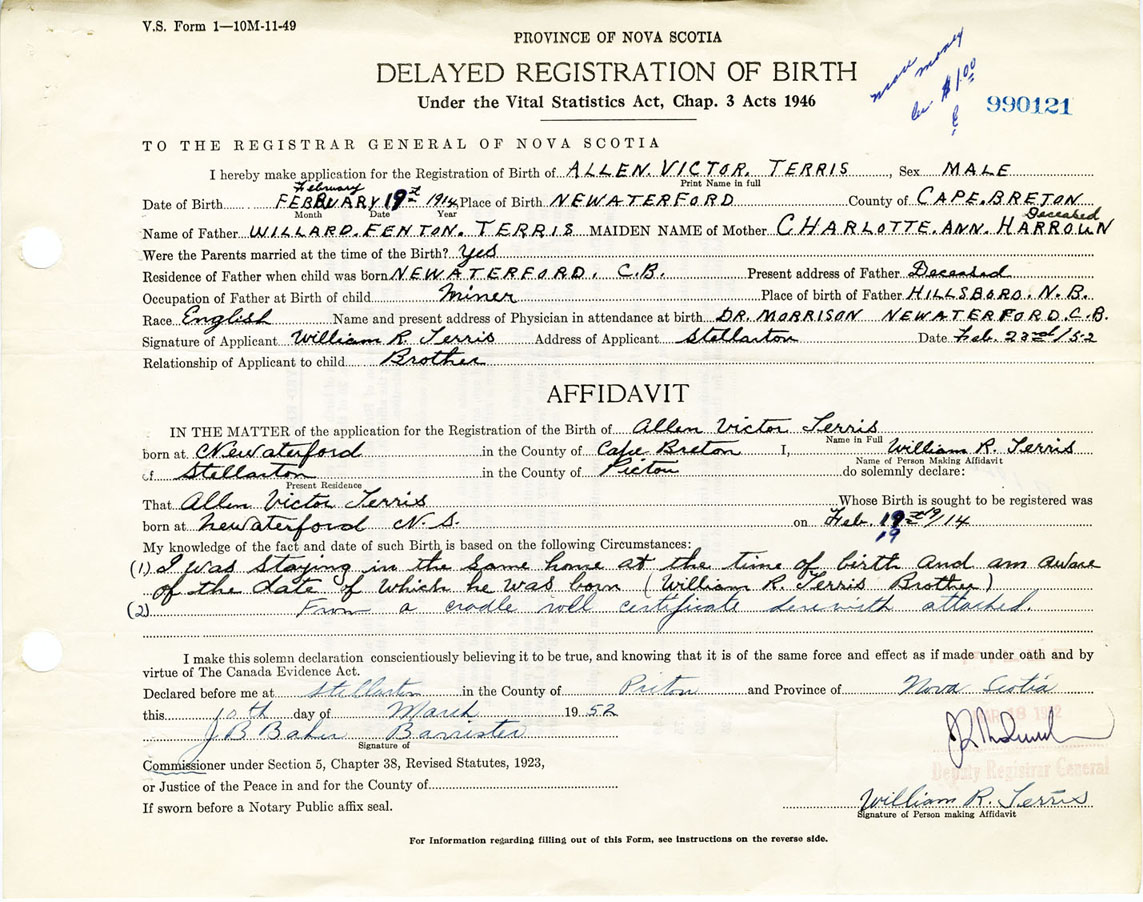 V.S. Form 1—10M-11-49
PROVINCE OF NOVA SCOTIA
DELAYED REGISTRATION OF BIRTH
Under the Vital Statistics Act, Chap. 3 Acts 1946
money
$1.00
990121
TO THE REGISTRAR GENERAL OF NOVA SCOTIA
I hereby make application for the Registration of Birth of ALLEN. VICTOR. TERRIS, Sex MALE
Print Name in full
February
Date of Birth FEBRUARY 19 1914 Place of Birth NEWATERFORD County of CAPE. BRETON
Month Date Year
Deceased
Name of Father WILLARD. FENTON. TERRIS MAIDEN NAME of Mother CHARLOTTE. ANN. HARROUN
Were the Parents married at the time of the Birth? Yes
Residence of Father when child was born NEWATERFORD. C.B. Present address of Father Deceased
Occupation of Father at Birth of child Miner Place of birth of Father HILLSBORO. N.B.
Race English Name and present address of Physician in attendance at birth DR. MORRISON NEWATERFORD C.B.
Signature of Applicant William R. Terris Address of Applicant Stellarton Date Feb. 23rd/52
Relationship of Applicant to child Brother
AFFIDAVIT
IN THE MATTER of the application for the Registration of the Birth of Allen Victor Terris
Name in Full
born at Newaterford in the County of Cape Breton I, William R. Terris
Name of Person Making Affidavit
of Stellarton in the County of Pictou do solemnly declare:
Present Residence
That Allen Victor Terris Whose Birth is sought to be registered was
born at Newaterford N.S. on Feb. 19 19/14
19
My knowledge of the fact and date of such Birth is based on the following Circumstances:
(1) I was staying in the same home at the time of birth and am aware
of the date of which he was born (William R. Terris Brother)
(2) From a cradle roll certificate herewith attached.
I make this solemn declaration conscientiously believing it to be true, and knowing that it is of the same force and effect as if made under oath and by
virtue of The Canada Evidence Act.
Declared before me at Stellarton in the County of Pictou and Province of Nova Scotia
this 10th day of March 1952
J B Baker Barrister
Signature of
Commissioner under Section 5, Chapter 38, Revised Statutes, 1923,
Deputy Registrar General
or Justice of the Peace in and for the County of
William R. Terris
If sworn before a Notary Public affix seal.
Signature of Person making Affidavit
For Information regarding filling out of this Form, see instructions on the reverse side.